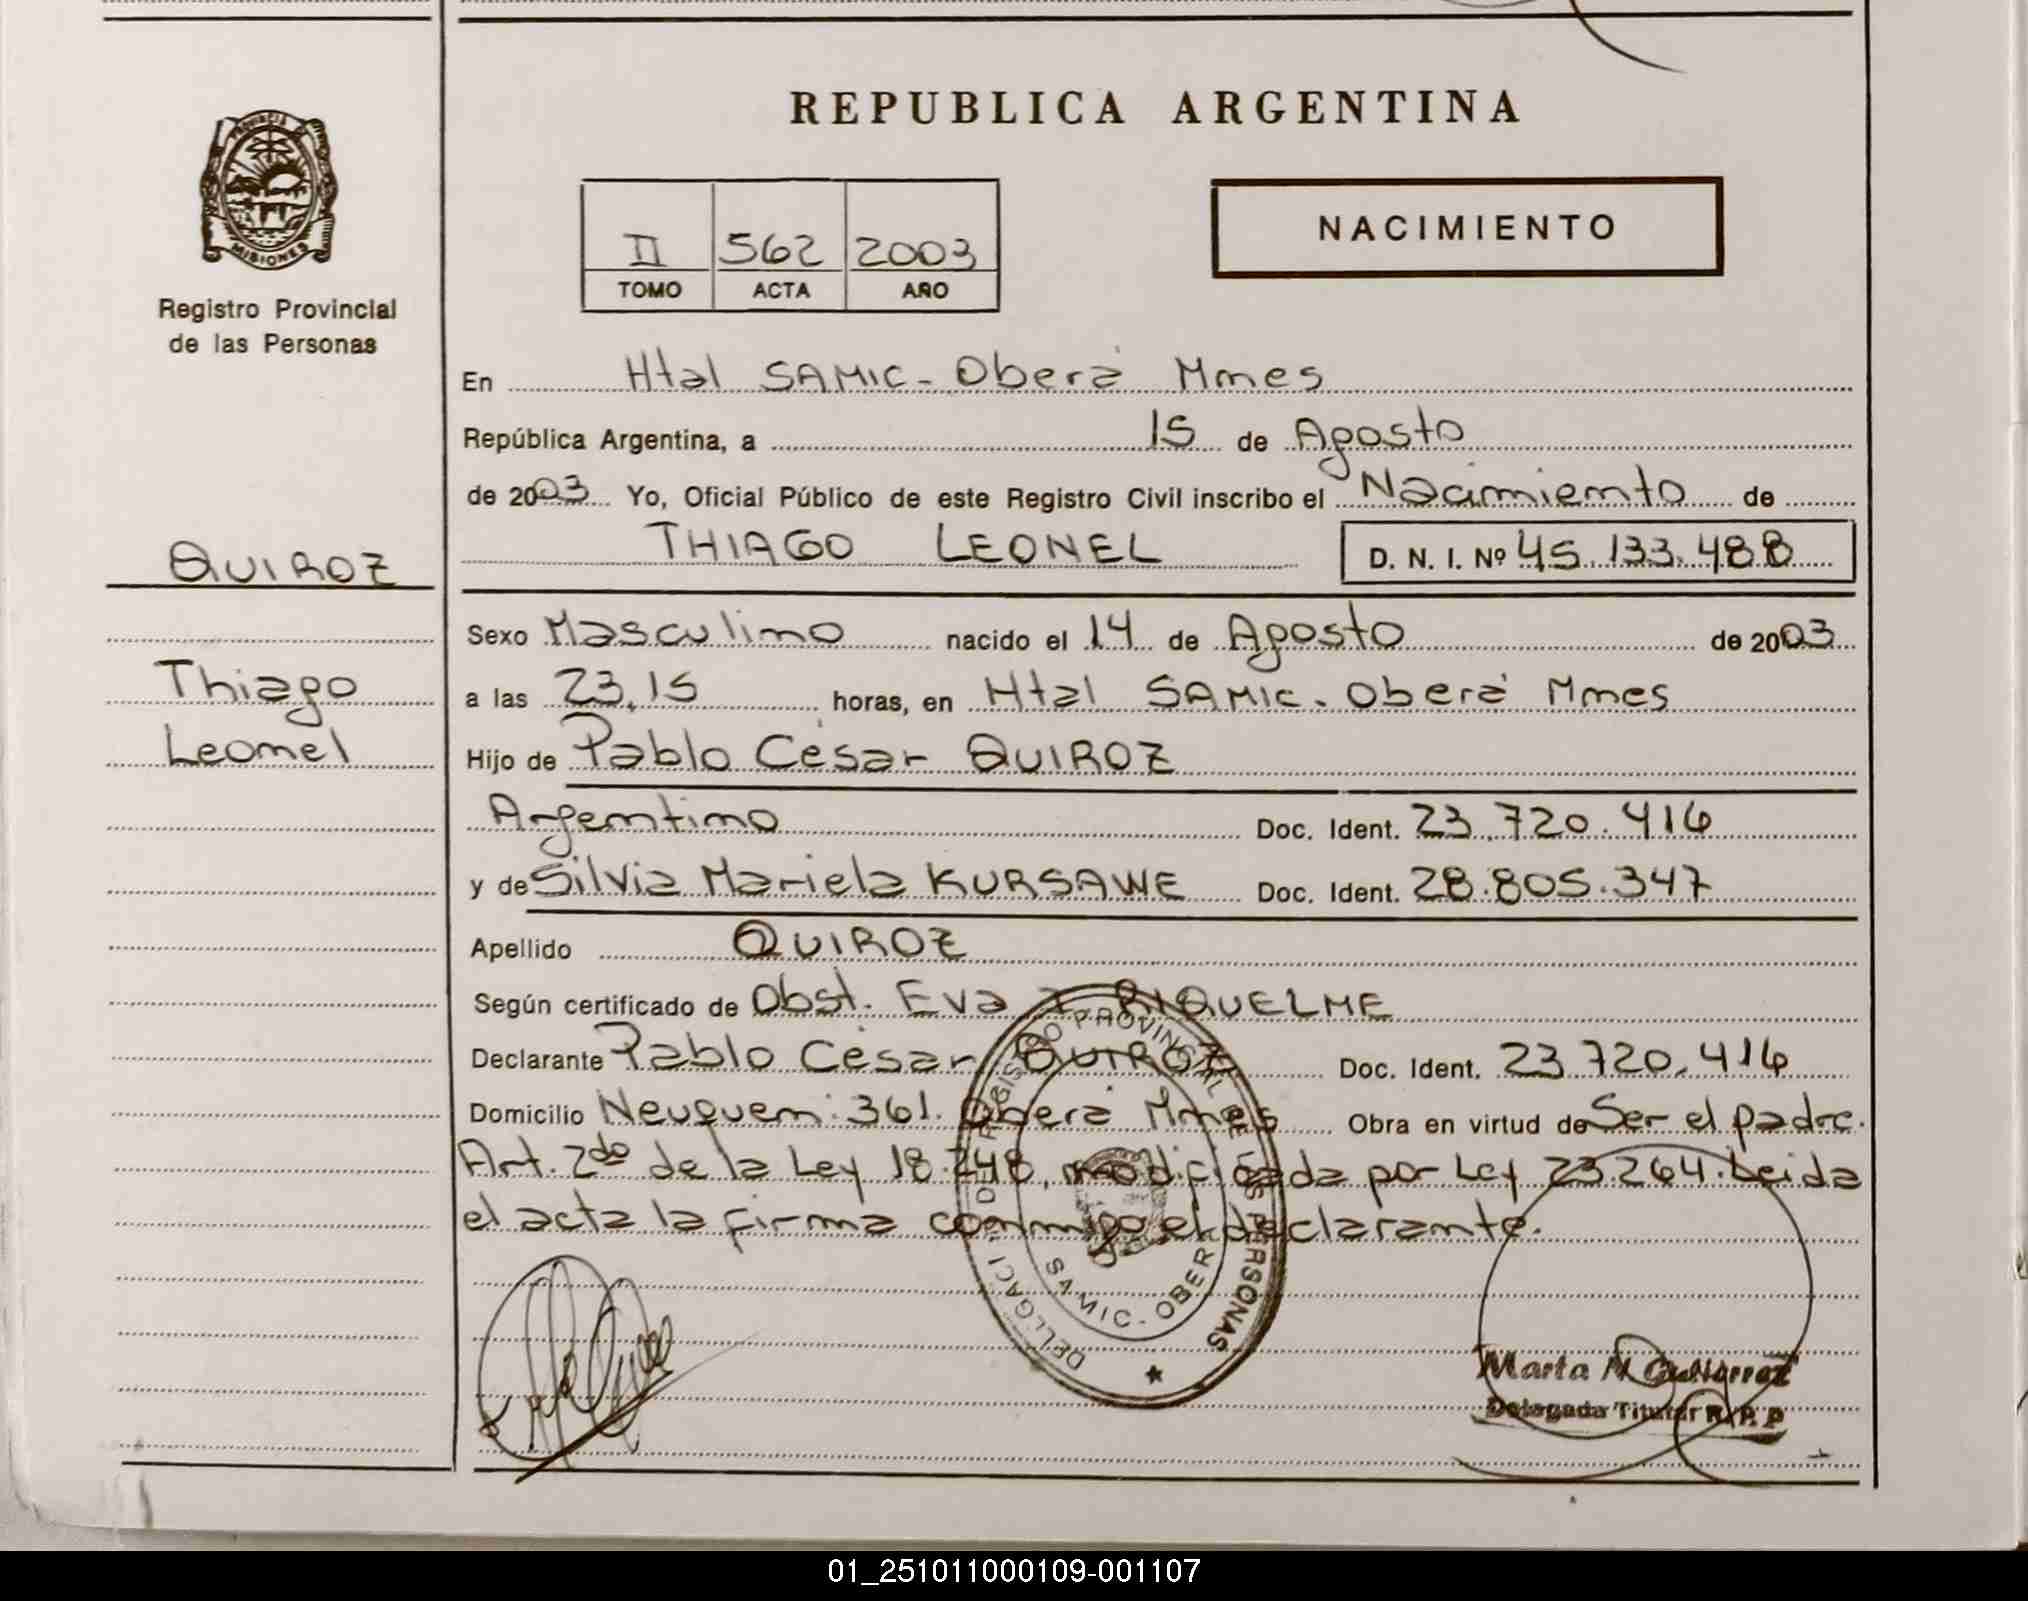 REPUBLICA ARGENTINA
PROVINCIA
MISIONES
Registro Provincial
de las Personas
NACIMIENTO
II 562 2003
TOMO ACTA AÑO
En Htal SAMIC - Oberá Mnes
República Argentina, a 15 de Agosto
de 2003 Yo, Oficial Público de este Registro Civil inscribo el Nacimiento de
THIAGO LEONEL D. N. I. Nº 45.133.488
QUIROZ
Thiago
Leonel
Sexo Masculino nacido el 14 de Agosto de 2003
a las 23,15 horas, en Htal SAMIC - Oberá Mnes
Hijo de Pablo César QUIROZ
Argentino Doc. Ident. 23.720.416
y de Silvia Mariela KURSAWE Doc. Ident. 28.805.347
Apellido QUIROZ
Según certificado de Obst. Eva RIQUELME
Declarante Pablo César QUIROZ Doc. Ident. 23 720.416
Domicilio Neuquen 361. Oberá Mnes Obra en virtud de Ser el padre.
Art. 2do de la Ley 18.248, modificada por Ley 23.264. Leida
el acta la firma conmigo el declarante.
REGISTRO PROVINCIAL DE LAS PERSONAS
SAMIC - OBERA
Marta N Gutierrez
Delegada Titular R.P.P
01_251011000109-001107